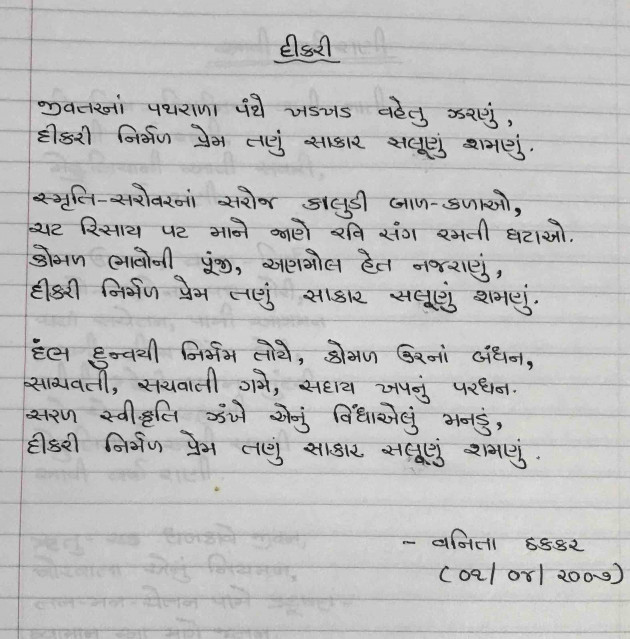 દીકરી
જીવતરનાં પથરાળા પંથે ખડખડ વહેતુ ઝરણું,
દીકરી નિર્મળ પ્રેમ તણું સાકાર સલૂણું શમણું.
સ્મૃતિ-સરોવરનાં સરોજ કાલુડી બાળ-કળાઓ,
ચટ રિસાય પટ માને જાણે રવિ સંગ રમતી ઘટાઓ.
કોમળ ભાવોની પૂંજી, અણમોલ હેત નજરાણું,
દીકરી નિર્મળ પ્રેમ તણું સાકાર સલૂણું શમણું.
દંભ દુન્વયી નિર્મમ તોયે, કોમળ ઉરનાં બંધન,
સાચવતી, સચવાતી ગમે, સદાય ખપનું પરધન.
સરળ સ્વીકૃતિ ઝંખે એનું વિંધાએલું મનડું,
દીકરી નિર્મળ પ્રેમ તણું સાકાર સલૂણું શમણું.
- વનિતા ઠક્કર
(૦૨/ ૦૪/ ૨૦૦૭)